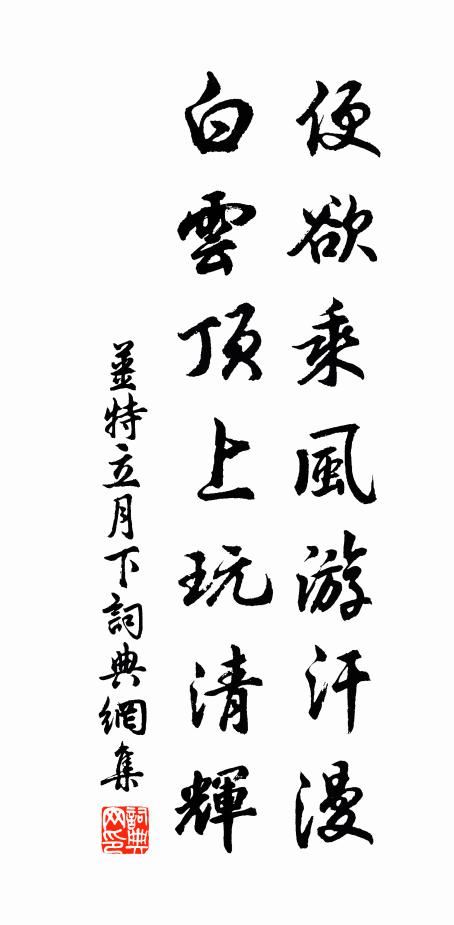 便欲乘風游汗漫
白雲頂上玩清輝
姜特立月下詞典網集
詞典網印